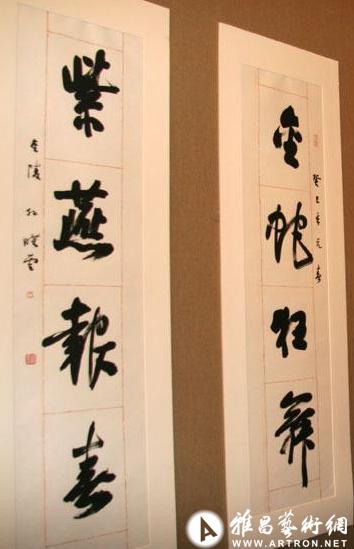 金蛇狂舞
癸巳年元春
紫燕報春
金陵孫曉雲
雅昌藝術網
WWW.ARTRON.NET